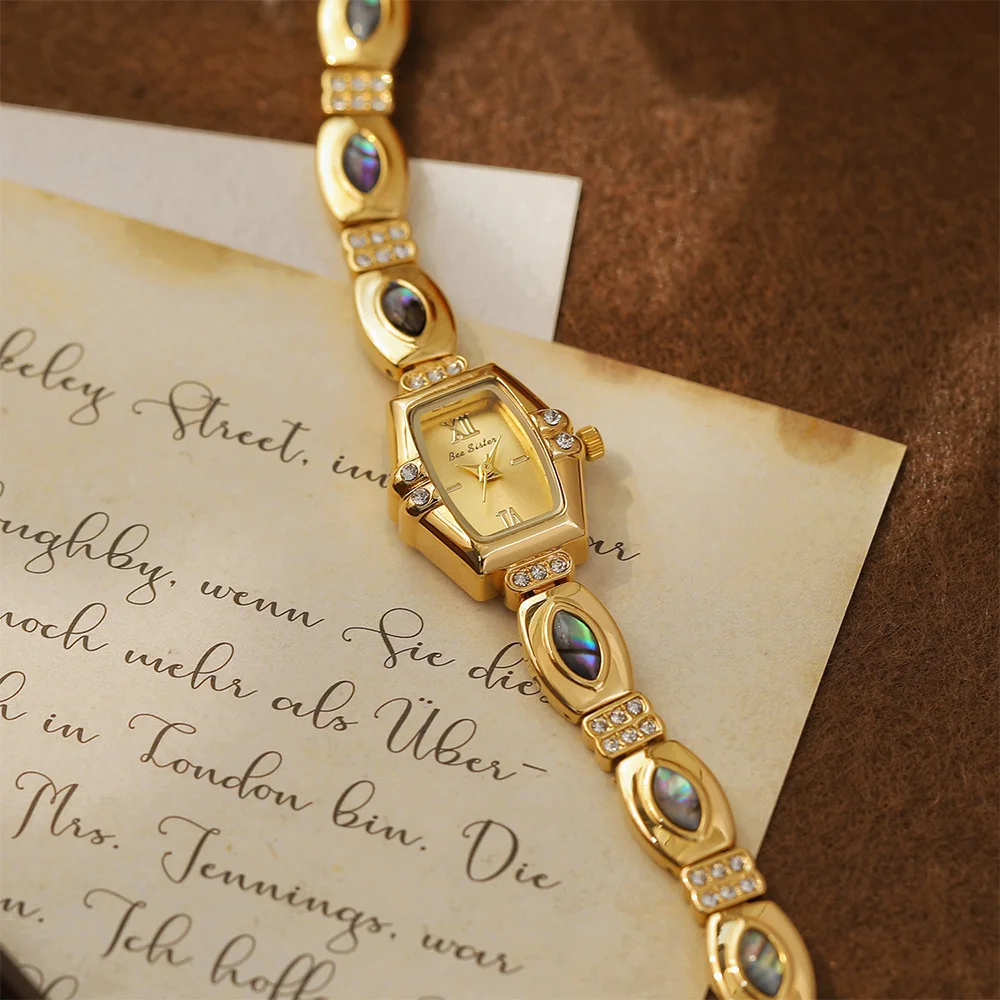 keley Street, im
ar
ughby, wenn Sie die
noch mehr als Über-
h in London bin. Die
Mrs. Jennings, war
n. Ich hoffe
XII
Bee Sister
VI